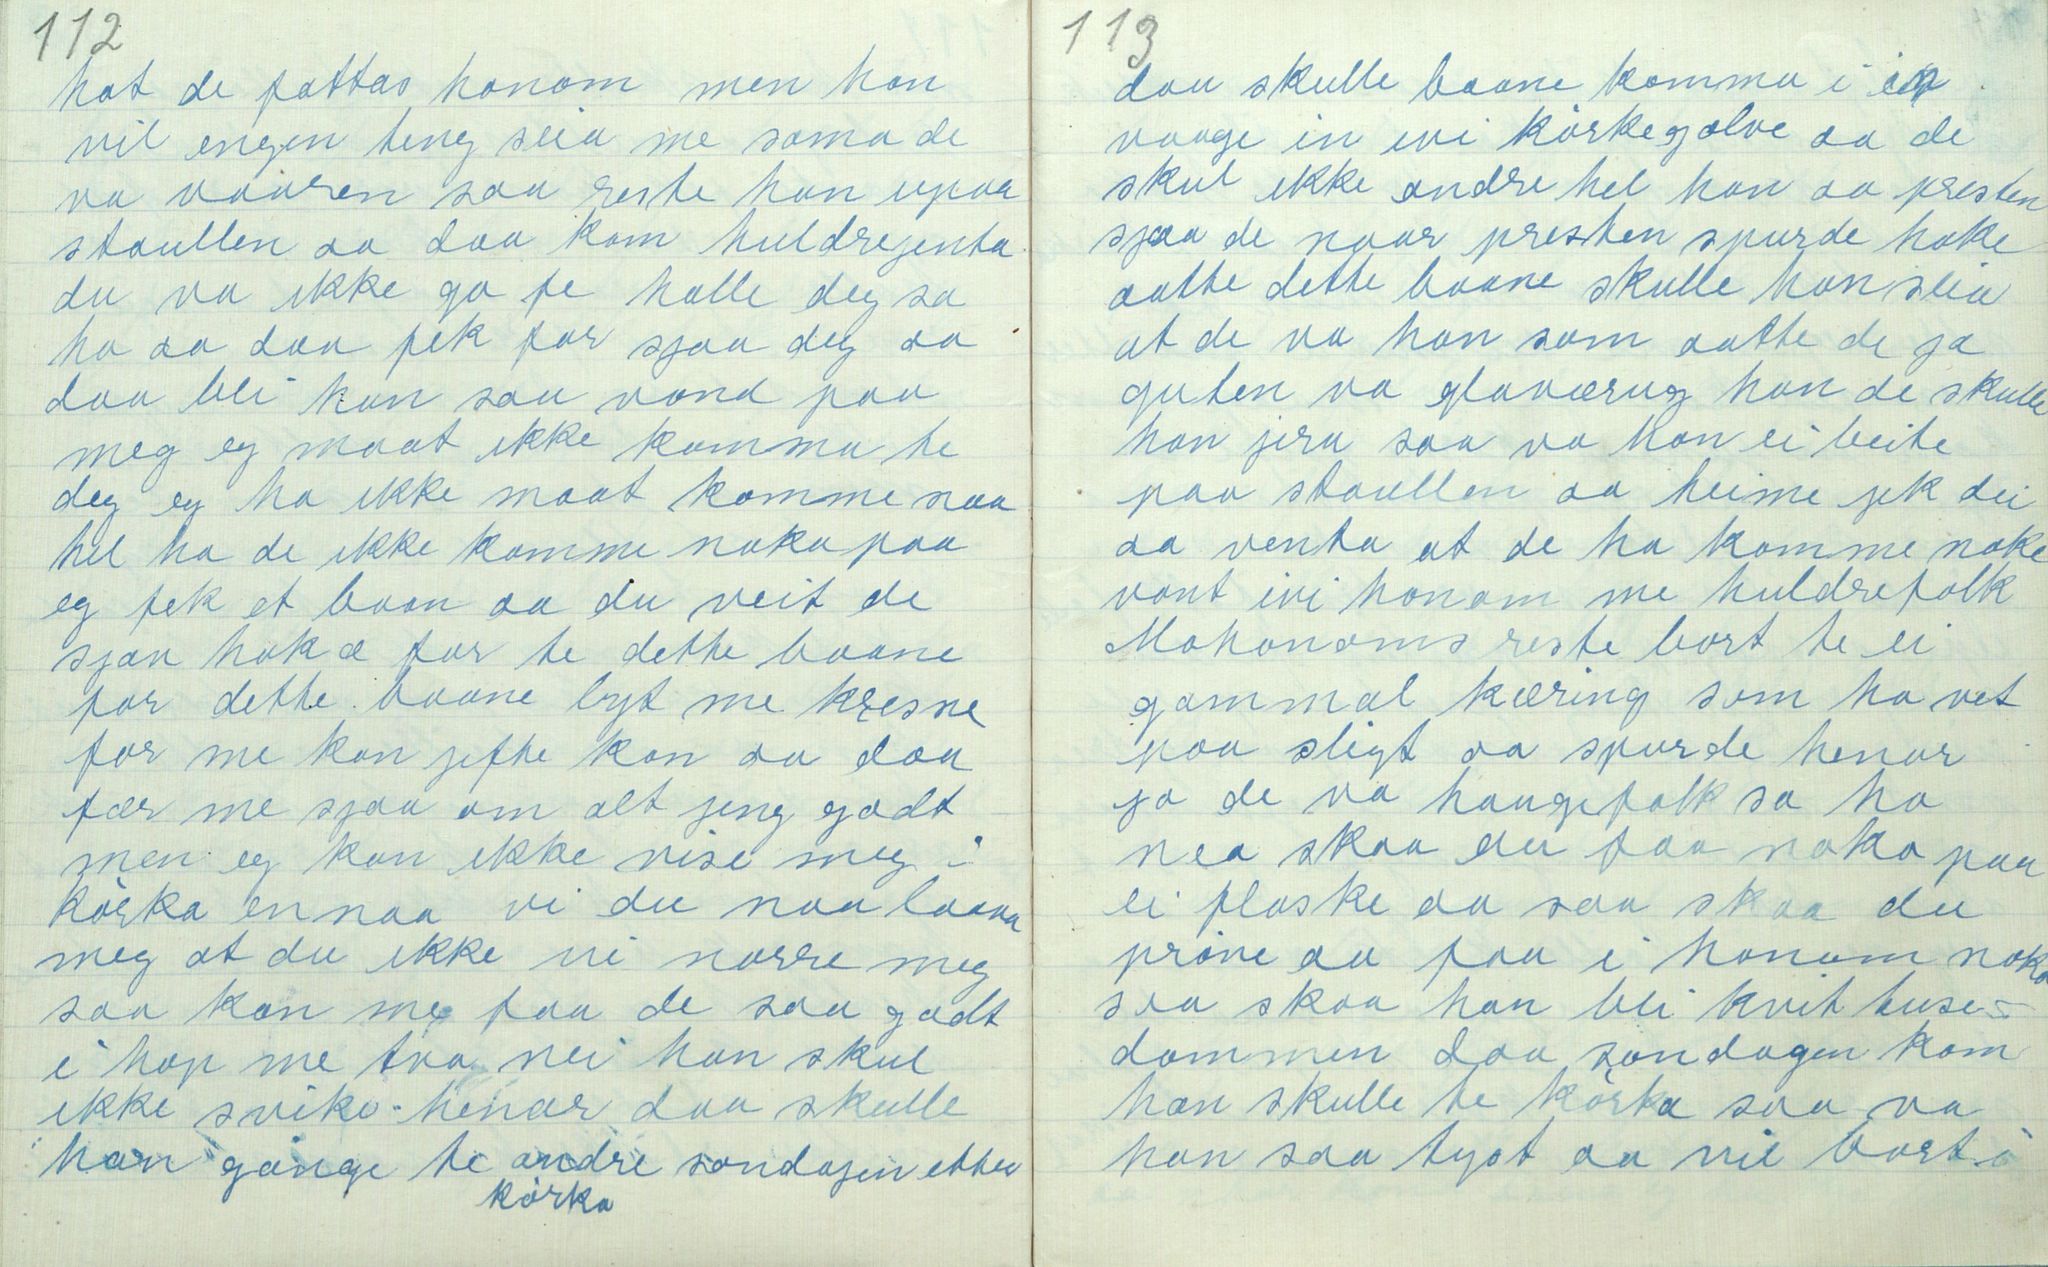 112
hot de fattas honom men han
vil engen teng seia me soma de
va vaaren saa reste han upaa
staullen aa daa kom huldrejenta
du va ikke go te halle deg sa
ho aa daa fek far sjaa deg aa
daa blei han saa vond paa
meg eg maat ikke komma te
deg eg ha ikke maat komme naa
hel ha de ikke komme noko paa
eg fek et baan aa du veit de
sjaa hokæ far te dette baane
for dette baane lyt me kresne
for me kan jefte kan aa daa
fær me sjaa om alt jeng godt
men eg kan ikke vise meg i
kòrka ennaa vi du naa laava
meg at du ikke vi narre meg
saa kan me faa de saa godt
i hop me tvo nei han skul
ikke svike henar daa skulle
han gange te andre sondagen etter
kòrka
113
daa skulle baane komma i ei
vaage in ivi kòrkegolve aa de
skul ikke andre hel han aa presten
sjaa de naar presten spurde hoke
aatte dette baane skulle han seia
at de va han som aatte de ja
guten va glaværug han de skulle
han jera saa va han ei beite
paa staullen aa heime jek dei
aa venta at de ha komme noke
vont ivi honom me huldrefolk
Mohonoms reste bort te ei
gammal kæring som ha vet
paa sligt aa spurde henar
jo de va haugefolk sa ho
nea skaa du faa noko paa
ei flaske aa saa skaa du
pròve aa faa i honom noko
saa skaa han bli kvit tuse=
dommen daa sondagen kom
han skulle te kòrka saa va
han saa tyst aa vil bort i